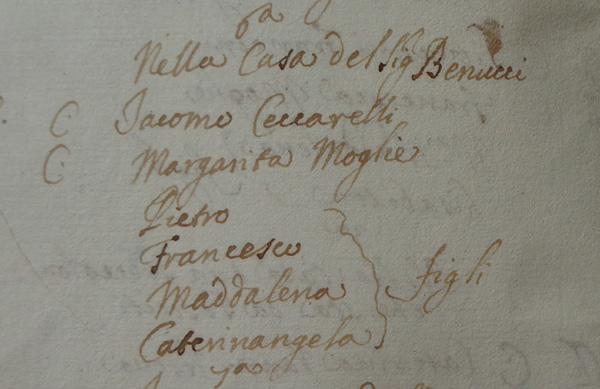 6a
Nella Casa del Sig Benucci
C. Iacomo Ceccarelli
C. Margarita Moglie
Pietro
Francesco
Maddalena
Caterinangela
figli
7a